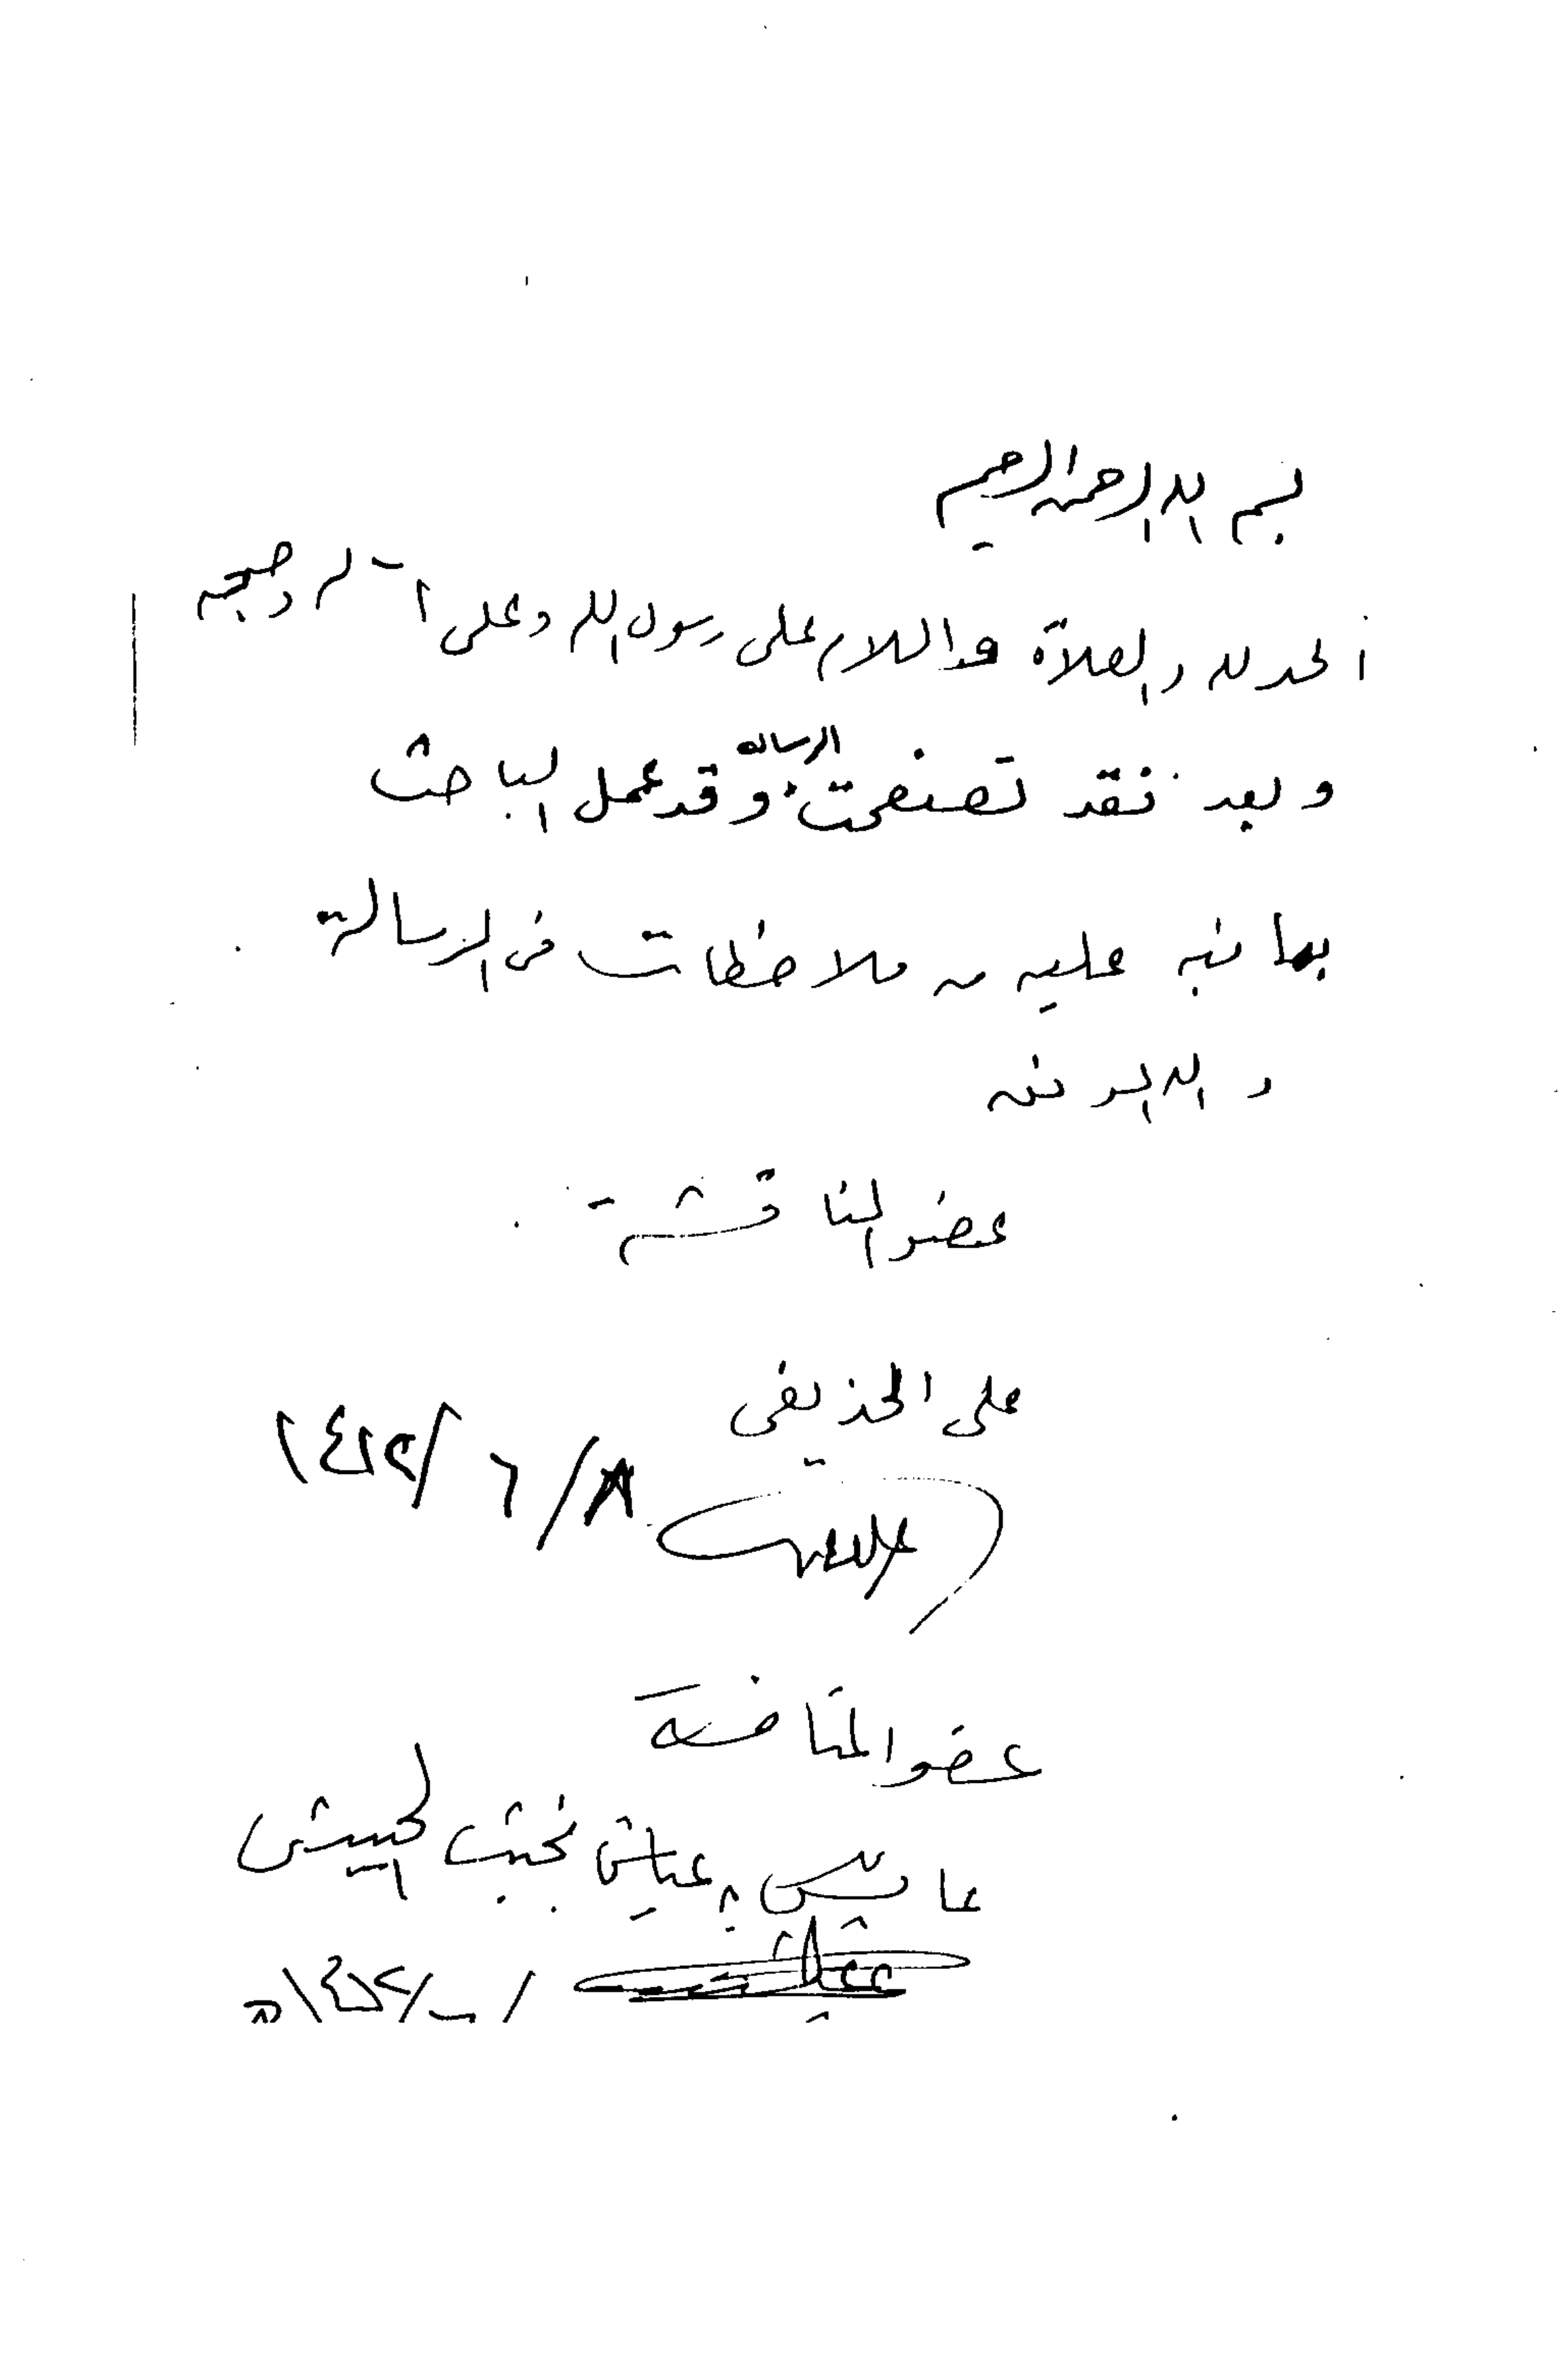 بسم الله الرحمن الرحيم
الحمد لله والصلاة والسلام على رسول الله وعلى آله وصحبه
وبعد فقد تصفحت الرسالة وقد عمل الباحث
بما نبه عليه من ملاحظات في الرسالة
والله الموفق
عضو المناقشة
علي الحذيفي
٨/ ٦ /١٤١٢
عضو المناقشة
عياش بخيت الحبيشي